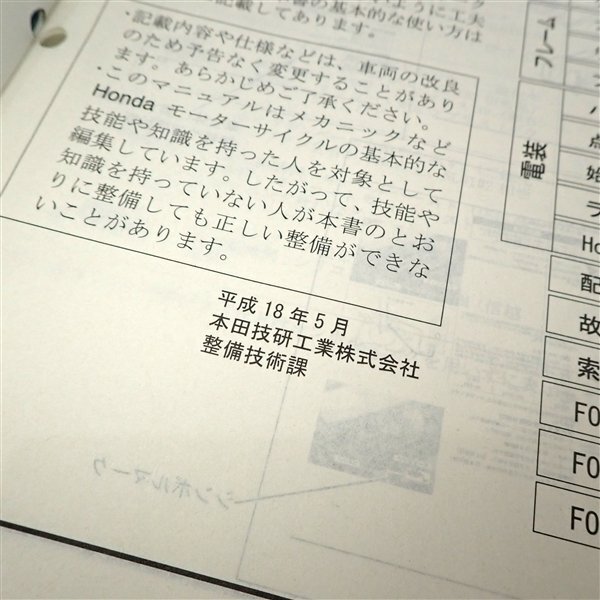 記載してあります。
本書の基本的な使い方は
・記載内容や仕様などは、車両の改良
のため予告なく変更することがあり
ます。あらかじめご了承ください。
・このマニュアルはメカニックなど
Honda モーターサイクルの基本的な
技能や知識を持った人を対象として
編集しています。したがって、技能や
知識を持っていない人が本書のとお
りに整備しても正しい整備ができな
いことがあります。
平成18年5月
本田技研工業株式会社
整備技術課
シンボルマーク
フレーム
電装
点
始
ラ
Ho
配
故
索
F0
F0
F0